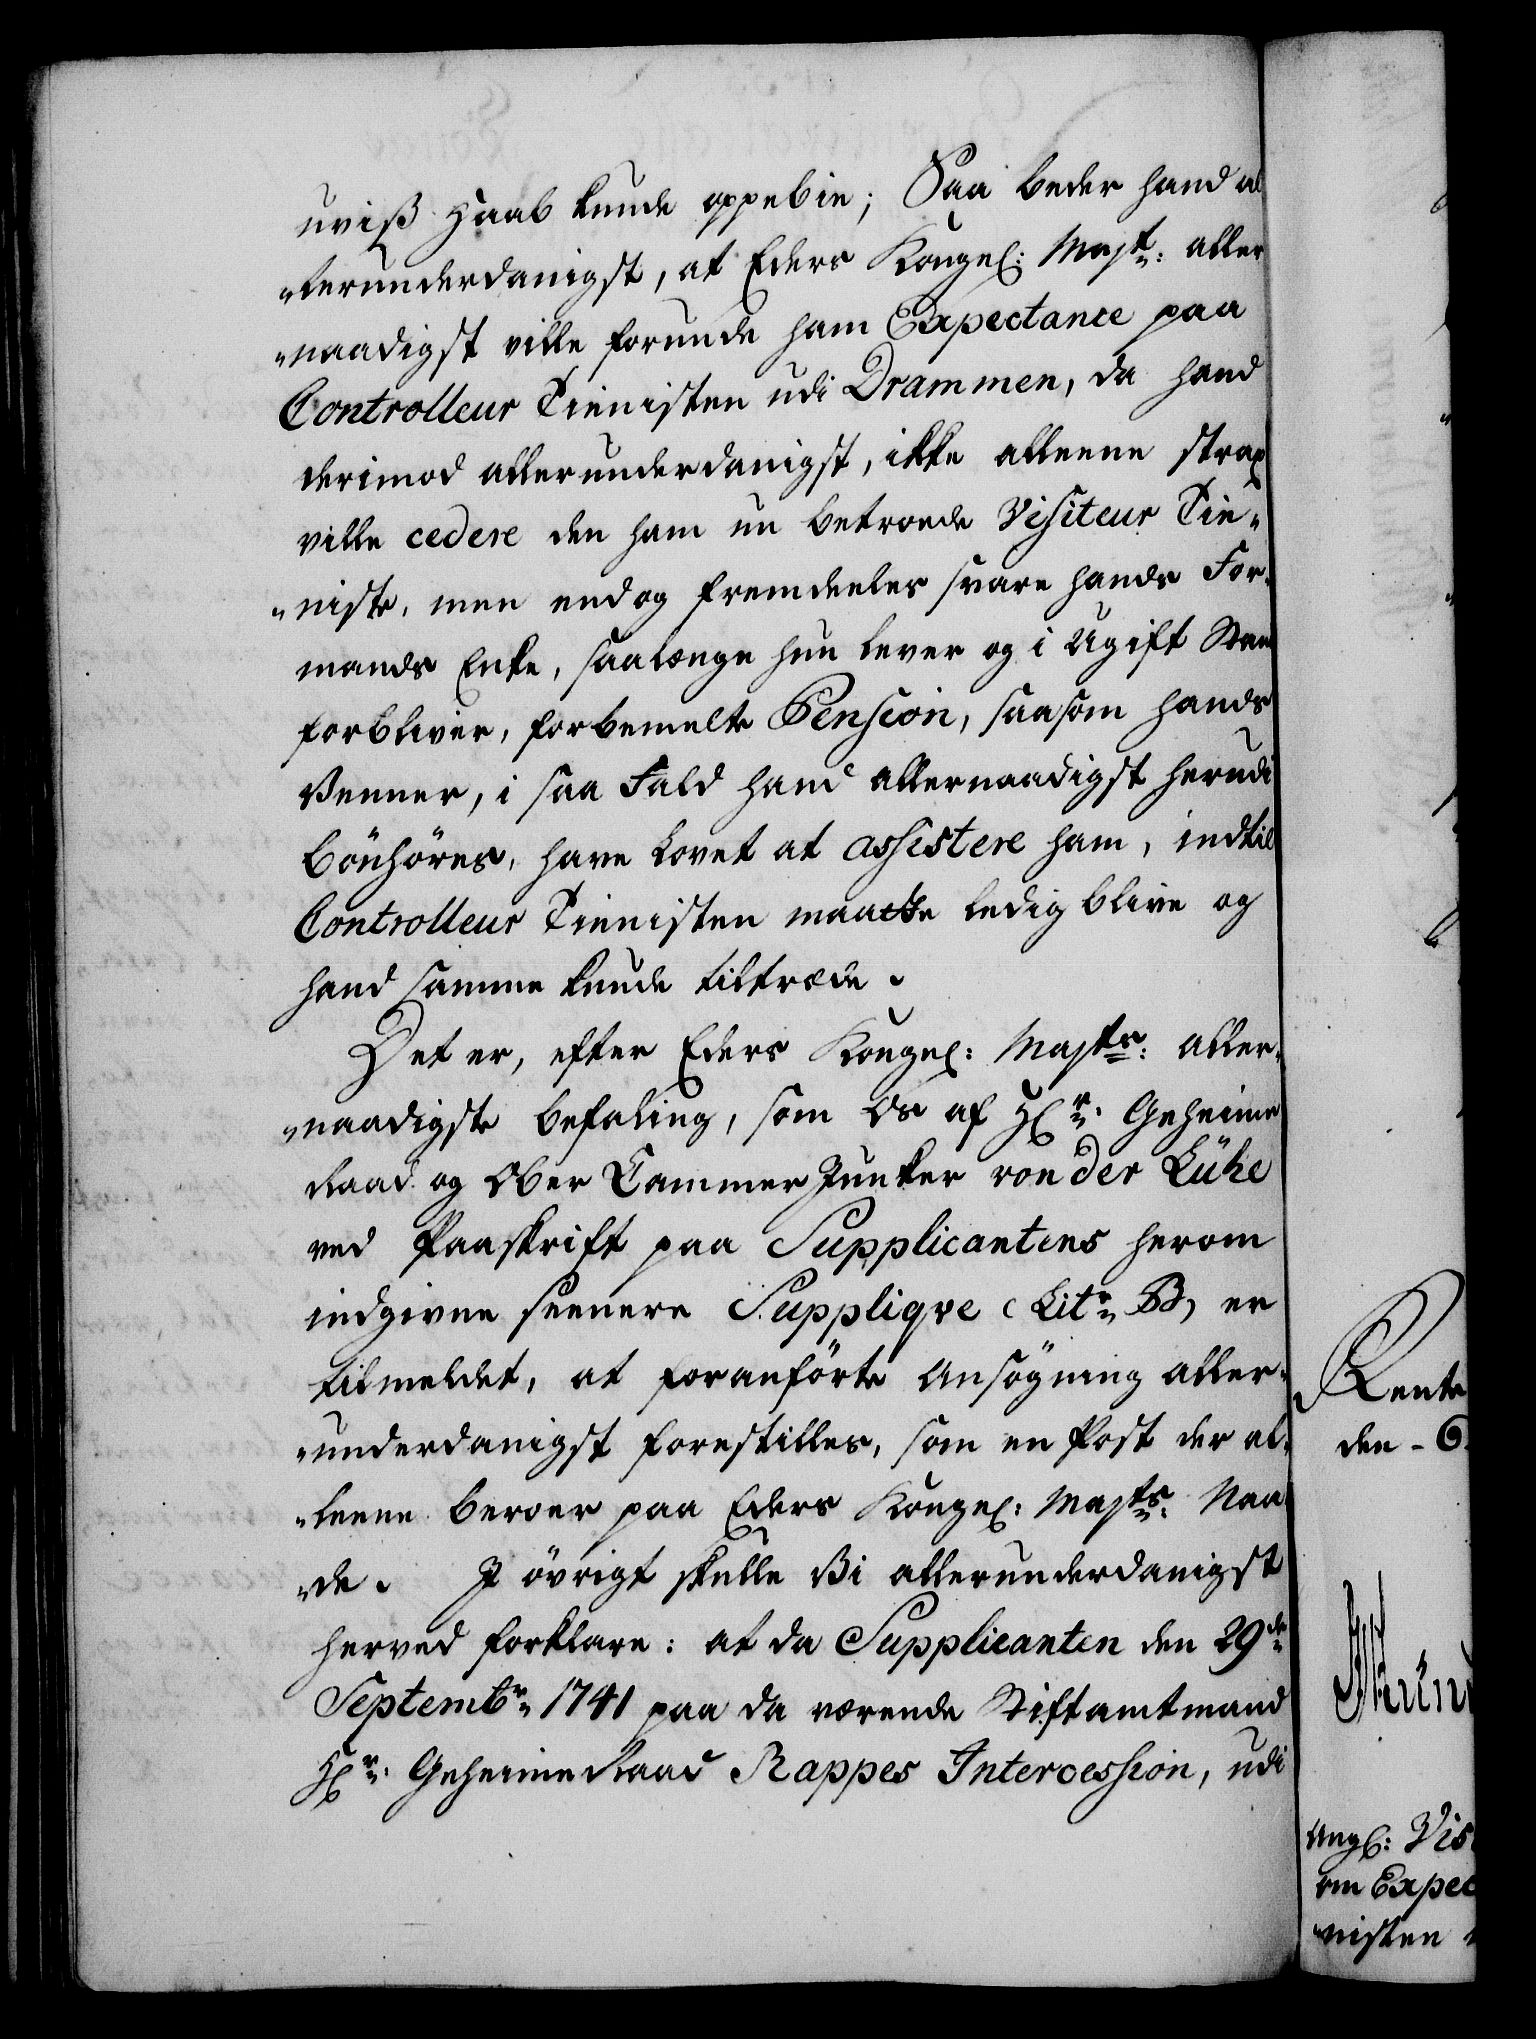 uviß Haab kunde oppebie; Saa beder hand al
„lerunderdanigst, at Eders Kongel: Mayt: aller
„naadigst ville forunde ham Expectance paa
Controlleur Tienisten udi Drammen, da hand
derimod allerunderdanigst, ikke alleene strax
ville cedere den ham nu betroede Visiteur Tie„
„niste, men endog fremdeeles svare hands For„
mands Enke, saalænge hun lever og i Ugift Stand
forbliver, forbemelte Pension, saasom hands
Venner, i saa Fald hand allernaadigst herudi
bönhöres, have lovet at assistere ham, indtil
Controlleur Tienisten maatte ledig blive og
hand samme kunde tiltræde.
Det er, efter Eders Kongel: Mayts: aller„
„naadigste befaling, som Os af Hr: Geheime
Raad og Ober Cammer Junker von der Lühe
ved Paaskrift paa Supplicantens herom
indgivne seenere Suppliqve (Litr: B) er
tilmeldet, at foranförte Ansögning aller„
„underdanigst forestilles, som en Post der al„
„leene beroer paa Eders Kongel: Mayts: Naa
„de. I övrigt skulle Vi allerunderdanigst
herved forklare: at da Supplicanten den 29de
Septembr: 1741 paa da værende Stiftamtmand
Hr: Geheime Raad Rappes Intercession, udi
Rente
den - 6
Ang: Vis
om Expec
„nisten